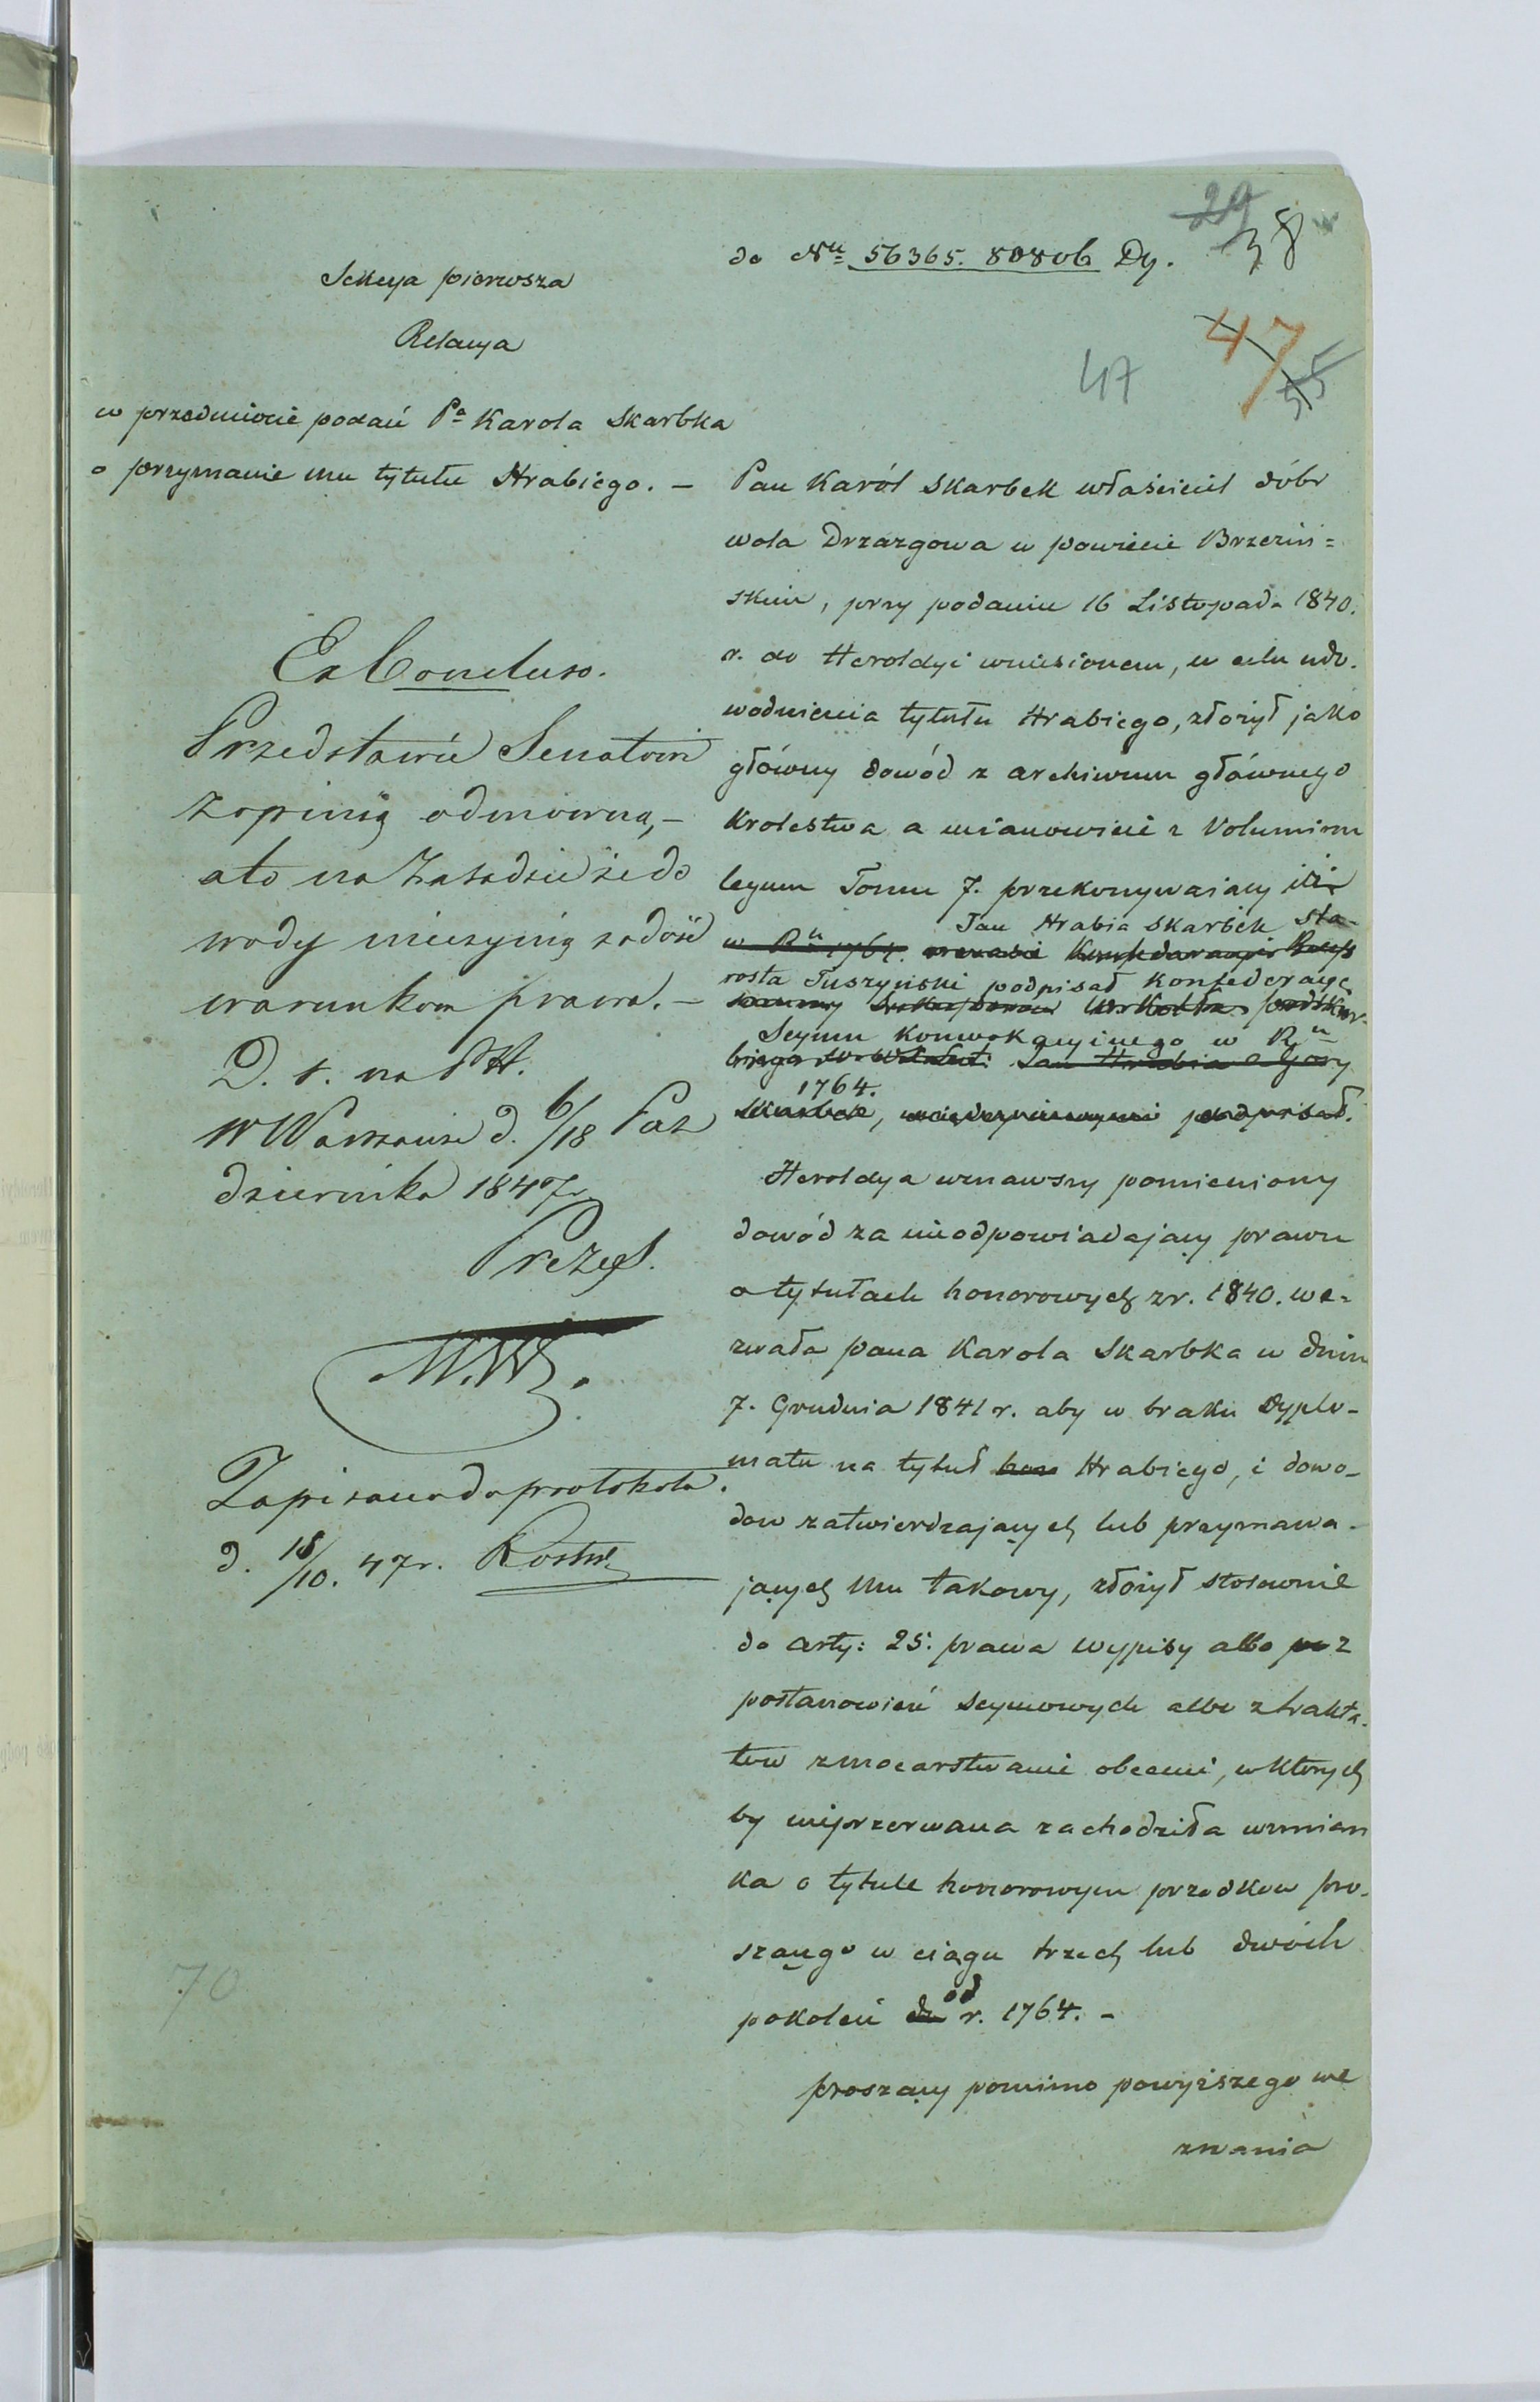 29
38
do Nu 56365. 80806 Dy.
47
55
47
Sekcya pierwsza
Relacya
w przedmiocie podań Pa Karola Skarbka
o przyznanie mu tytułu Hrabiego. –
Ex Concluso.
Przedstawić Senatowi
z opinią odmowną, –
a to na zasadzie że do
wody nieczynią zadość
warunkom prawa. –
D. s. na P. H.
w Warszawie d. 6/18 Paz
dziernika 1847 r.
Prezes.
Zapisano do protokołu.
d. 18/10. 47 r.
Pan Karól Skarbek właściciel dóbr
wola Drzazgowa w powiecie Brzeziń=
skim, przy podaniu 16 Listopada 1840.
r. do Heroldyi wniesionem, w celu udo.
wodnienia tytułu Hrabiego, złożył jako
główny dowód z archiwum głównego
Krolestwa a mianowicie z Voluminu
legum Tomu 7. przekonywaiący iż
Jan Hrabia Skarbek Sta-
w Ru 1764. Konfederacyi
rosta Tuszyński podpisał Konfederacyę
Seymu Konwokacyinego w Ru
Jan Hrabia z Góry
1764.
Skarbek, podpisał.
Heroldya uznawszy pomieniony
dowód za nieodpowiadający prawu
o tytułach honorowych z r. 1840. we=
zwała pana Karola Skarbka w dniu
7. Grudnia 1841 r. aby w braku Dyplo-
matu na tytuł hon Hrabiego, i dowo-
dow zatwierdzających lub przyznawa-
jących Mu takowy, złożył stosownie
do arty: 25. prawa wypisy albo z
postanowień Seymowych albo z trakta.
tow z mocarstwami obcemi, w których
by nieprzerwana zachodziła wzmian
ka o tytule honorowym przodkow pro.
szącego w ciągu trzech lub dwóch
pokoleń od r. 1764. –
proszący pomimo powyższego we
zwania
70